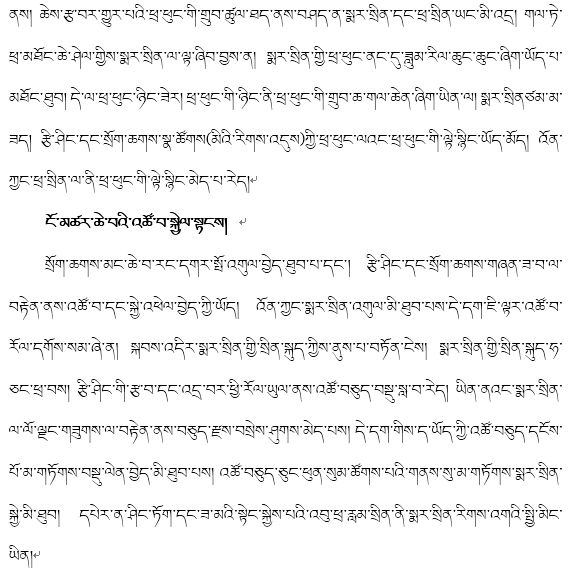 ནས། ཆེས་རྩ་བར་གྱུར་པའི་ཕྲ་ཕུང་གི་གྲུབ་ཚུལ་ཐད་ནས་བཤད་ན་སྨར་སྲིན་དང་ཕྲ་སྲིན་ཡང་མི་འདྲ། གལ་ཏེ་
ཕྲ་མཐོང་ཆེ་ཤེལ་གྱིས་སྨར་སྲིན་ལ་ལྟ་ཞིབ་བྱས་ན། སྨར་སྲིན་གྱི་ཕྲ་ཕུང་ནང་དུ་ཟླུམ་རིལ་ཆུང་ཆུང་ཞིག་ཡོད་པ་
མཐོང་ཐུབ། དེ་ལ་ཕྲ་ཕུང་ཉིང་ཟེར། ཕྲ་ཕུང་གི་ཉིང་ནི་ཕྲ་ཕུང་གི་གྲུབ་ཆ་གལ་ཆེན་ཞིག་ཡིན་ལ། སྨར་སྲིནཙམ་མ་
ཟད། རྩི་ཤིང་དང་སྲོག་ཆགས་སྣ་ཚོགས(མིའི་རིགས་འདུས)ཀྱི་ཕྲ་ཕུང་ལའང་ཕྲ་ཕུང་གི་ལྟེ་སྙིང་ཡོད་མོད། འོན་
ཀྱང་ཕྲ་སྲིན་ལ་ནི་ཕྲ་ཕུང་གི་ལྟེ་སྙིང་མེད་པ་རེད།
ངོ་མཚར་ཆེ་བའི་འཚོ་བ་སྐྱེལ་སྟངས།
སྲོག་ཆགས་མང་ཆེ་བ་རང་དགར་སྤོ་འགུལ་བྱེད་ཐུབ་པ་དང་། རྩི་ཤིང་དང་སྲོག་ཆགས་གཞན་ཟ་བ་ལ་
བརྟེན་ནས་འཚོ་བ་དང་སྐྱེ་འཕེལ་བྱེད་ཀྱི་ཡོད། འོན་ཀྱང་སྨར་སྲིན་འགུལ་མི་ཐུབ་པས་དེ་དག་ཇི་ལྟར་འཚོ་བ་
རོལ་དགོས་སམ་ཞེ་ན། སྐབས་འདིར་སྨར་སྲིན་གྱི་སྲིན་སྐུད་ཀྱིས་ནུས་པ་བཏོན་ངེས། སྨར་སྲིན་གྱི་སྲིན་སྐུད་ཧ་
ཅང་ཕྲ་བས། རྩི་ཤིང་གི་རྩ་བ་དང་འདྲ་བར་ཕྱི་རོལ་ཡུལ་ནས་འཚོ་བཅུད་བསྡུ་སླ་བ་རེད། ཡིན་ནའང་སྨར་སྲིན་
ལ་ལོ་ལྗང་གཟུགས་ལ་བརྟེན་ནས་བཅུད་རྫས་བསྲེས་ཤུགས་མེད་པས། དེ་དག་གིས་ད་ཡོད་ཀྱི་འཚོ་བཅུད་དངོས་
པོ་མ་གཏོགས་བསྡུ་ལེན་བྱེད་མི་ཐུབ་པས། འཚོ་བཅུད་ཅུང་ཕུན་སུམ་ཚོགས་པའི་གནས་སུ་མ་གཏོགས་སྨར་སྲིན་
སྐྱེ་མི་ཐུབ། དཔེར་ན་ཤིང་ཏོག་དང་ཟ་མའི་སྟེང་སྐྱེས་པའི་འབུ་ཕྲ་རླམ་སྲིན་ནི་སྨར་སྲིན་རིགས་འགའི་སྤྱི་མིང་
ཡིན།